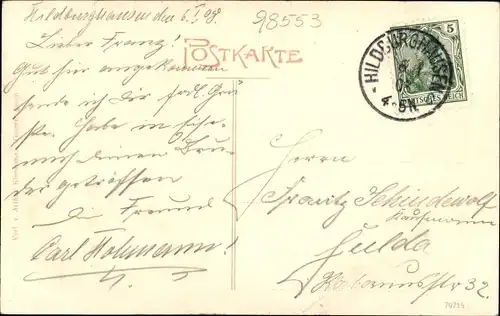 Hildburghausen den 6.I.08.
98553
Lieber Franz!
POSTKARTE
Gut hier angekommen
sende ich dir frdl. Grü
ße. Habe in Eise-
nach deinen Bru-
der getroffen
Dein Freund
Carl Hohmann!
HILDBURGHAUSEN
5
4-5N.
DEUTSCHES REICH
Herrn
Franz Schindewolf
Kaufmann
Fulda
Rabanusstr 32.
70715